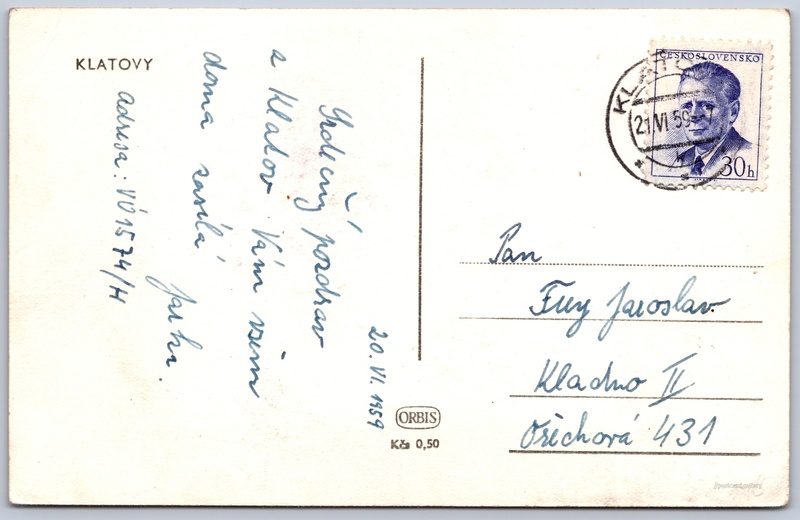 KLATOVY
20. VI. 1959
Srdečný pozdrav
z Klatov Vám všem
doma zasílá
Adresa: VÚ 1574/H
ORBIS
Kčs 0,50
ČESKOSLOVENSKO
30h
21.VI.59
Pan
Frey Jaroslav.
Kladno II
Ořechová 431